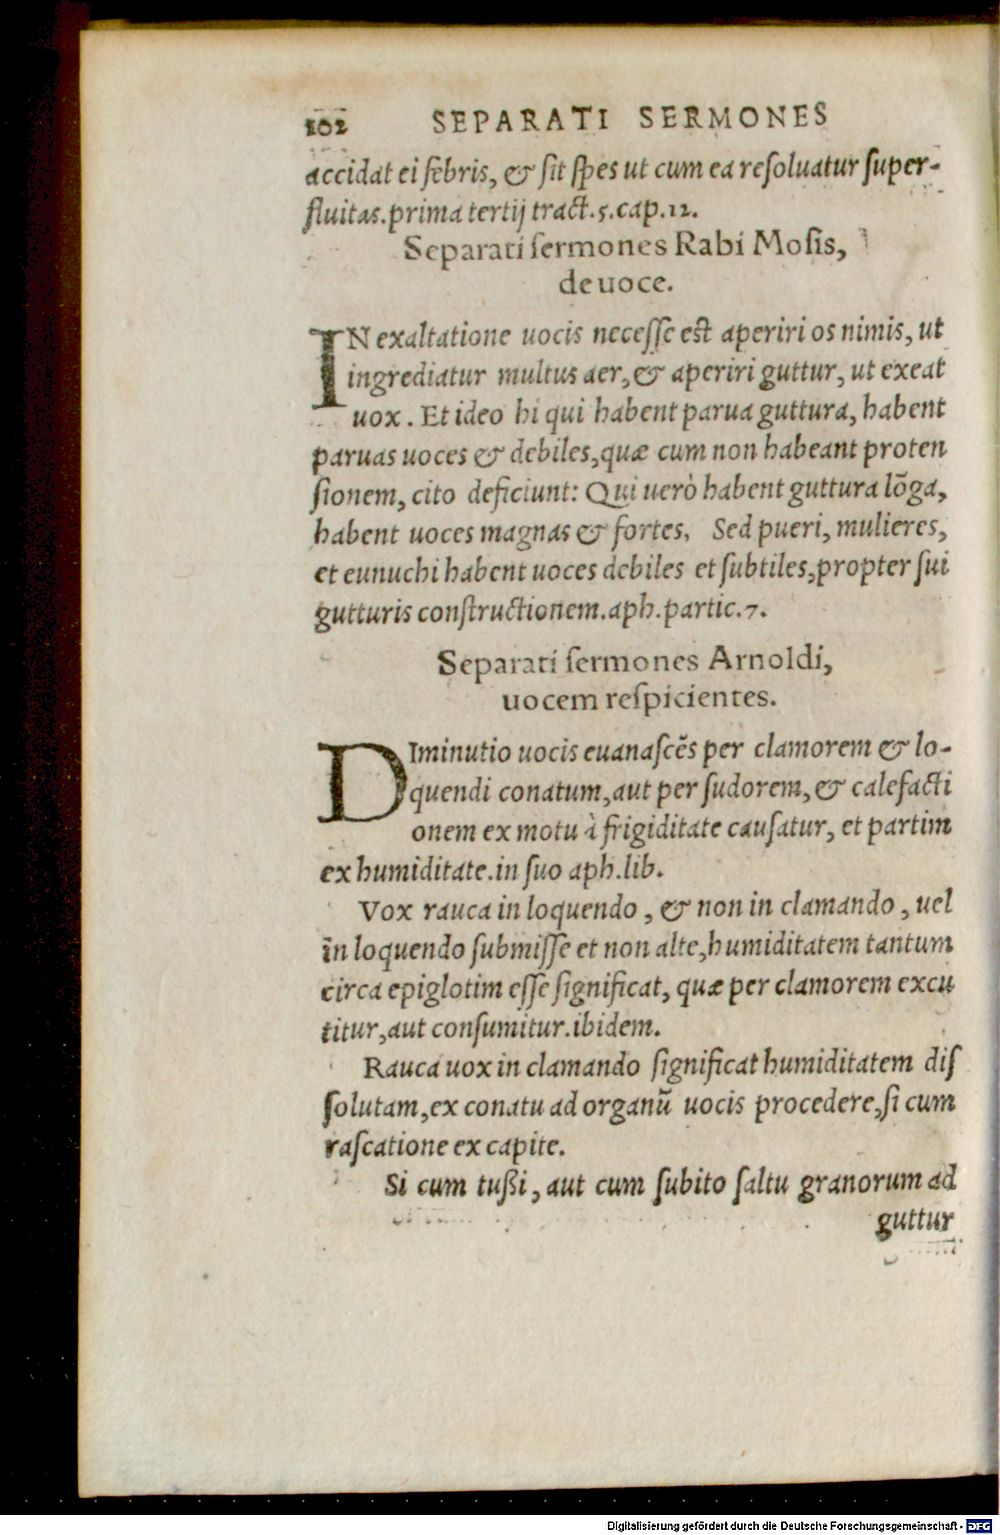 102 SEPARATI SERMONES
accidat ei febris, & sit spes ut cum ea resoluatur super-
fluitas.prima tertij tract.5.cap.12.
Separati sermones Rabi Mosis,
de uoce.
IN exaltatione uocis necesse est aperiri os nimis, ut
ingrediatur multus aer,& aperiri guttur, ut exeat
uox. Et ideo hi qui habent parua guttura, habent
paruas uoces & debiles,quæ cum non habeant proten
sionem, cito deficiunt: Qui uerò habent guttura lõga,
habent uoces magnas & fortes. Sed pueri, mulieres,
et eunuchi habent uoces debiles et subtiles,propter sui
gutturis constructionem.aph.partic.7.
Separati sermones Arnoldi,
uocem respicientes.
DIminutio uocis euanascẽs per clamorem & lo-
quendi conatum,aut per sudorem,& calefacti
onem ex motu à frigiditate causatur, et partim
ex humiditate.in suo aph.lib.
Vox rauca in loquendo, & non in clamando, uel
in loquendo submisse et non alte,humiditatem tantum
circa epiglotim esse significat, quæ per clamorem excu
titur,aut consumitur.ibidem.
Rauca uox in clamando significat humiditatem dis
solutam,ex conatu ad organũ uocis procedere,si cum
rascatione ex capite.
Si cum tußi, aut cum subito saltu granorum ad
guttur
Digitalisierung gefördert durch die Deutsche Forschungsgemeinschaft - DFG